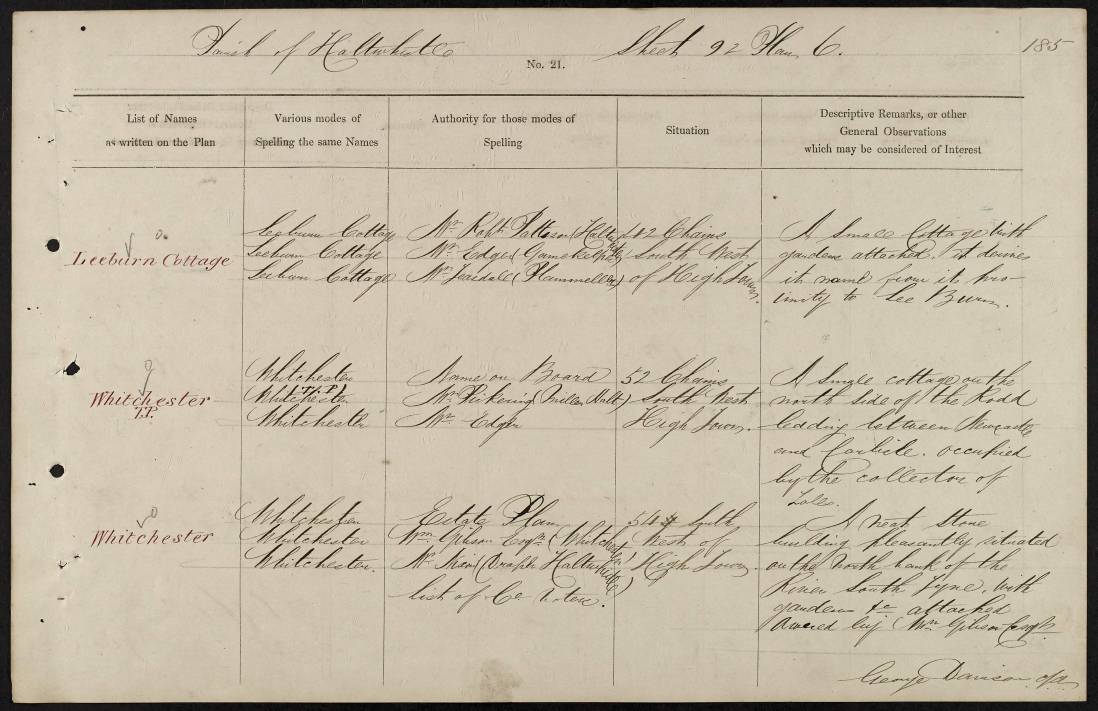 Parish of Haltwhistle Sheet 92 Plan 6. 185
No. 21.
List of Names
as written on the Plan
Various modes of
Spelling the same Names
Authority for those modes of
Spelling
Situation
Descriptive Remarks, or other
General Observations
which may be considered of Interest
Leeburn Cottage
Leeburn Cottage
Leeburn Cottage
Leeburn Cottage
Mr. Robt. Patteson (Haltwhistle)
Mr. Edger (Gamekeeper)
Mr. Teasdale (Plammeller)
42 Chains
South West
of High Town.
A Small Cottage with
gardens attached, it derives
its name from its prox-
imity to Lee Burn.
Whitchester
T.P.
Whitchester
(T.P.)
Whitchester
Whitchester
Name on Board
Mr. Pickering (Miller Halt)
Mr. Edger
52 Chains
South West
High Town.
A Single cottage on the
north side of the Road
leading between Newcastle
and Carlisle. occupied
by the collector of
Tolls.
Whitchester
Whitchester
Whitchester
Whitchester.
Estate Plan
Wm. Gibson Esqre. (Whitchester)
Mr. (Draper Haltwhistle)
list of Co. Voters.
54 South
West of
High Town.
A neat Stone
building pleasantly situated
on the North bank of the
River South Tyne, with
gardens &c attached
Owned by Wm. Gibson Esqr.
George Davison c/a